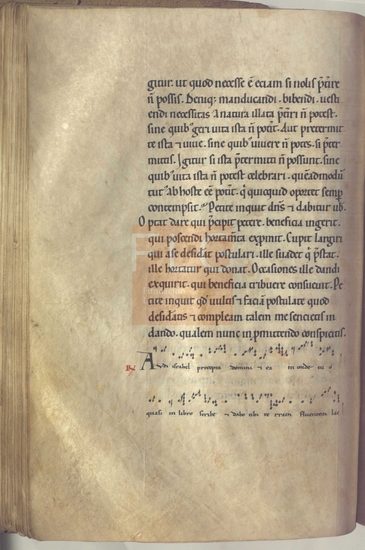 gitur. ut quod necesse ē eciam si nolis p̄terire
n̄ possis. Deniq; manducandi. bibendi. uesti
endi necessitas a natura illata p̄teriri n̄ potest.
sine quib; geri uita ista n̄ potest. Aut pretermit
te ista & uiue. sine quib; uiuere n̄ potes. si p̄ter
mittis. Igitur si ista p̄termitti n̄ possunt. sine
quib; uita ista n̄ potest celebrari. quēadmodū
tut' ab hoste eē potest. q quicquid oportet semp
contempsit. Petite inquit dn̄s & dabitur ub.
Optat dare qui p̄cipit petere. beneficia ingerit.
qui poscendi hortam̄ta exp̄mit. Cupit largiri
qui a se desiderat postulari. ille suadet q p̄stat.
ille hortatur qui donat. Occasiones ille dandi
exquirit. qui beneficia tribuere consueuit. Pe
tite inquit qd uultis & faciā postulate quod
desideratis & compleam talem me sencietis in
dando. qualem nunc in p̄mittendo conspicitis.
Audi israhel precepta domini & ea in corde tuo
quasi in libro scribe & dabo tibi terram fluentem lac